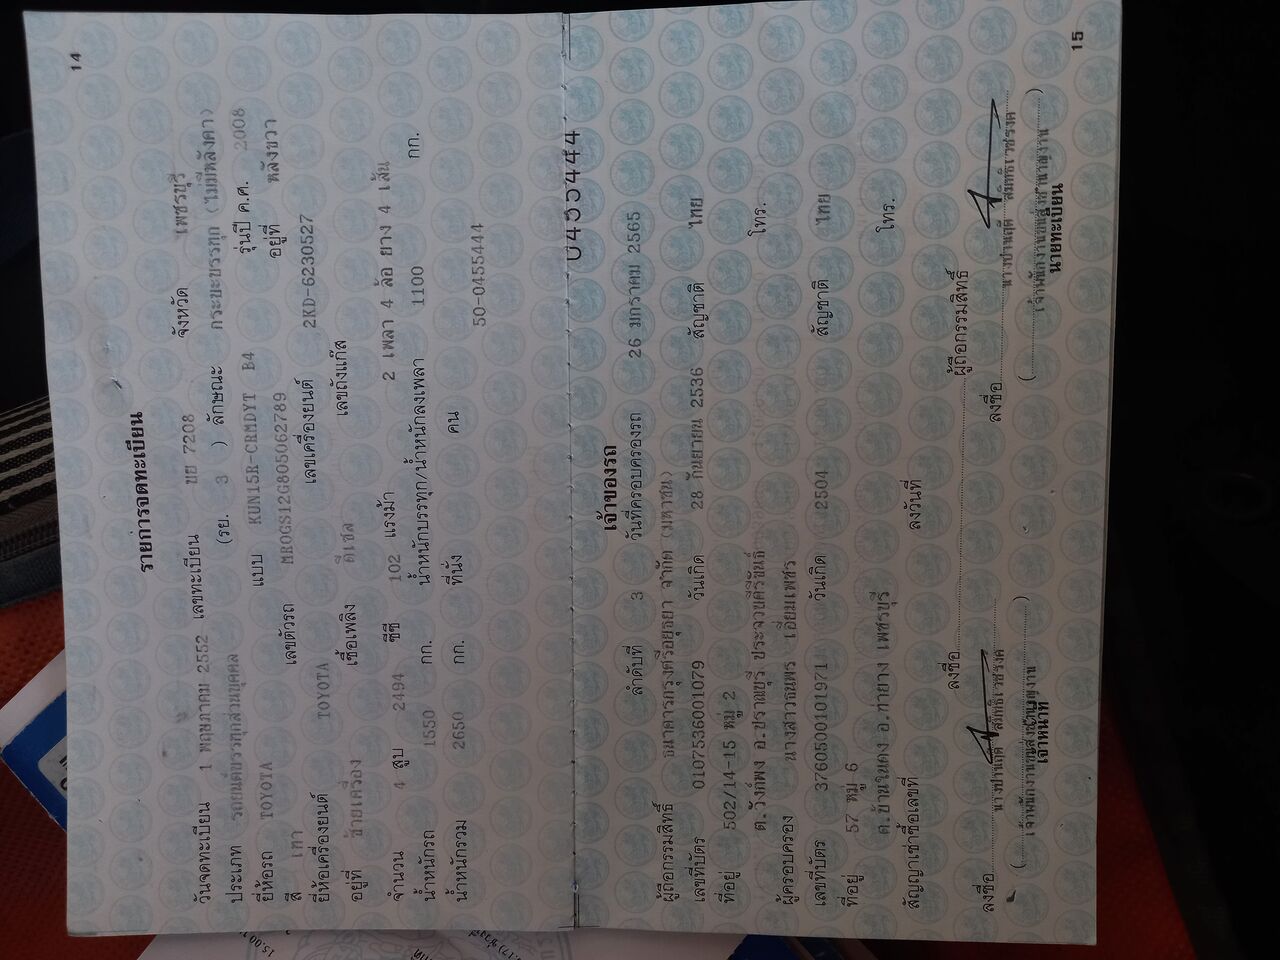 14
รายการจดทะเบียน
วันจดทะเบียน 1 พฤษภาคม 2552 เลขทะเบียน ขย 7208 จังหวัด เพชรบุรี
ประเภท รถยนต์บรรทุกส่วนบุคคล (รย. 3 ) ลักษณะ กระบะบรรทุก (ไม่มีหลังคา)
ยี่ห้อรถ TOYOTA แบบ KUN15R-CRMDYT B4 รุ่นปี ค.ศ. 2008
สี เทา เลขตัวรถ MROGS12G805062789 อยู่ที่ หลังขวา
ยี่ห้อเครื่องยนต์ TOYOTA เลขเครื่องยนต์ 2KD-6230527
อยู่ที่ ซ้ายเครื่อง เชื้อเพลิง ดีเซล เลขถังแก๊ส
จำนวน 4 สูบ 2494 ซีซี 102 แรงม้า 2 เพลา 4 ล้อ ยาง 4 เส้น
น้ำหนักรถ 1550 กก. น้ำหนักบรรทุก/น้ำหนักลงเพลา 1100 กก.
น้ำหนักรวม 2650 กก. ที่นั่ง คน
50-0455444
0455444
เจ้าของรถ
ลำดับที่ 3 วันที่ครอบครองรถ 26 มกราคม 2565
ผู้ถือกรรมสิทธิ์ ธนาคารกรุงศรีอยุธยา จำกัด (มหาชน)
เลขที่บัตร 0107536001079 วันเกิด 28 กันยายน 2536 สัญชาติ ไทย
ที่อยู่ 502/14-15 หมู่ 2
ต.วังก์พง อ.ปราณบุรี ประจวบคีรีขันธ์ โทร.
ผู้ครอบครอง นางสาวธนพร เอี่ยมเพชร
เลขที่บัตร 3760500101971 วันเกิด 2504 สัญชาติ ไทย
ที่อยู่ 57 หมู่ 6
ต.บ้านในดง อ.ท่ายาง เพชรบุรี โทร.
สัญญาเช่าซื้อเลขที่ ลงวันที่
ลงชื่อ ผู้ถือกรรมสิทธิ์
ลงชื่อ ลงชื่อ
เจ้าหน้าที่ นายทะเบียน
15